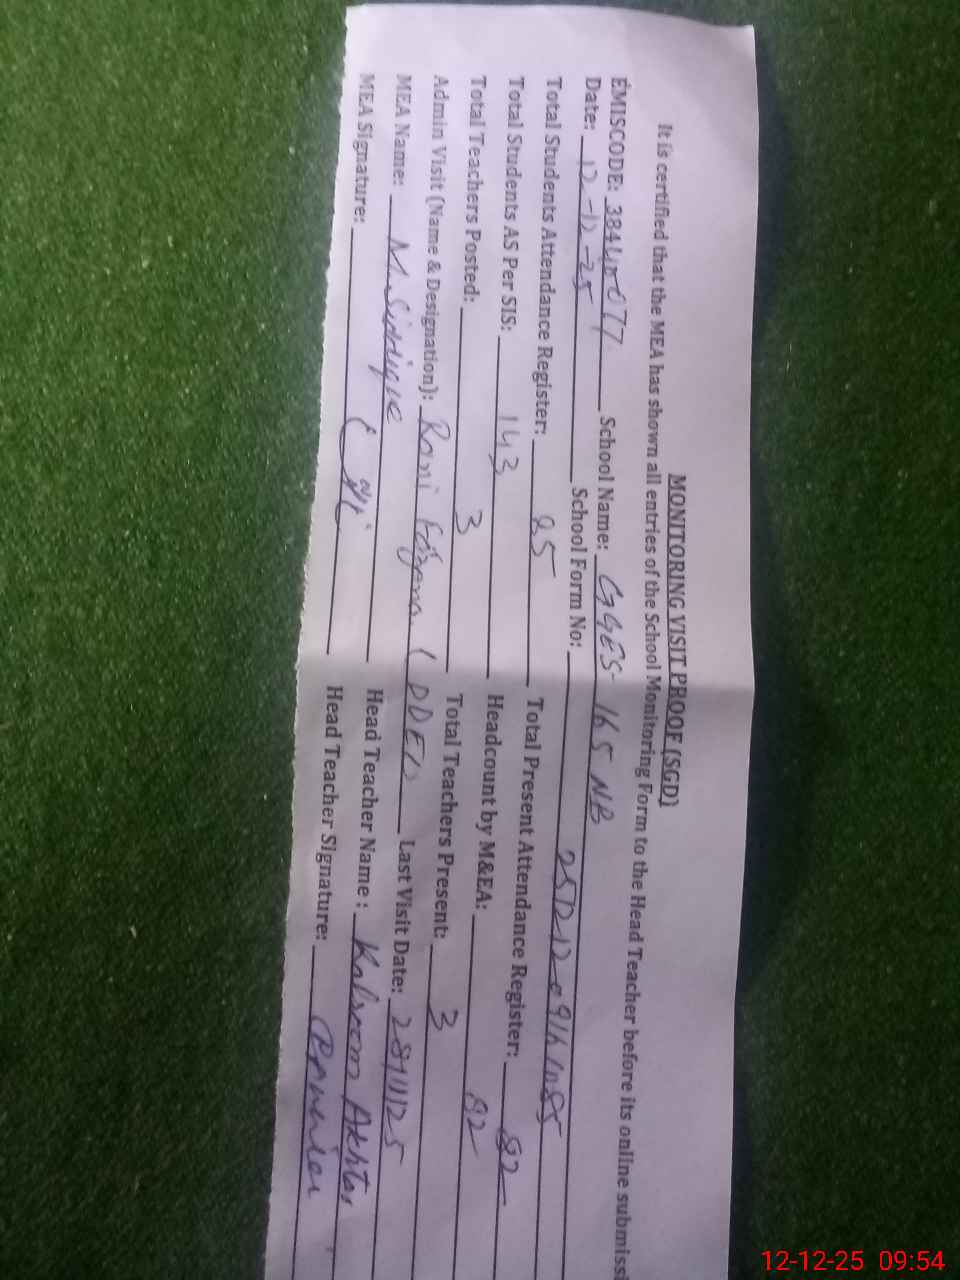 MONITORING VISIT PROOF (SGD)
It is certified that the MEA has shown all entries of the School Monitoring Form to the Head Teacher before its online submissi
EMISCODE: 38440077 School Name: GGES 165 NB
Date: 12-12-25 School Form No:
Total Students Attendance Register: 85 Total Present Attendance Register: 82
Total Students AS Per SIS: 143 Headcount by M&EA: 82
Total Teachers Posted: 3 Total Teachers Present: 3
Admin Visit (Name & Designation): Rani (DDEO Last Visit Date: 28/11/25
MEA Name: M. Siddique Head Teacher Name: Kalsoom Akhtar
MEA Signature: Head Teacher Signature:
12-12-25 09:54